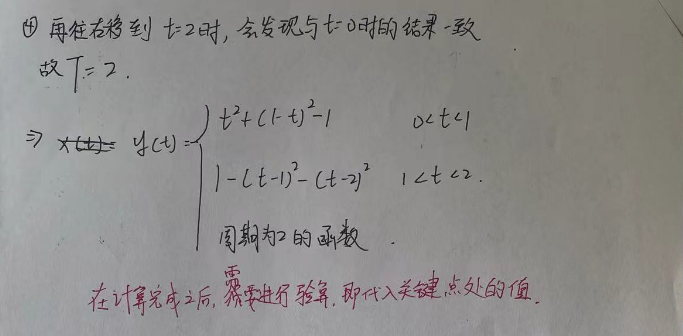 ④ 再往右移到 t=2时, 会发现与t=0时的结果一致
故 T=2.
⇒ y(t)= { t²+(1-t)²-1 0<t<1
1-(t-1)²-(t-2)² 1<t<2.
周期为2的函数.
在计算完成之后, 需要进行验算, 即代入关键点处的值.